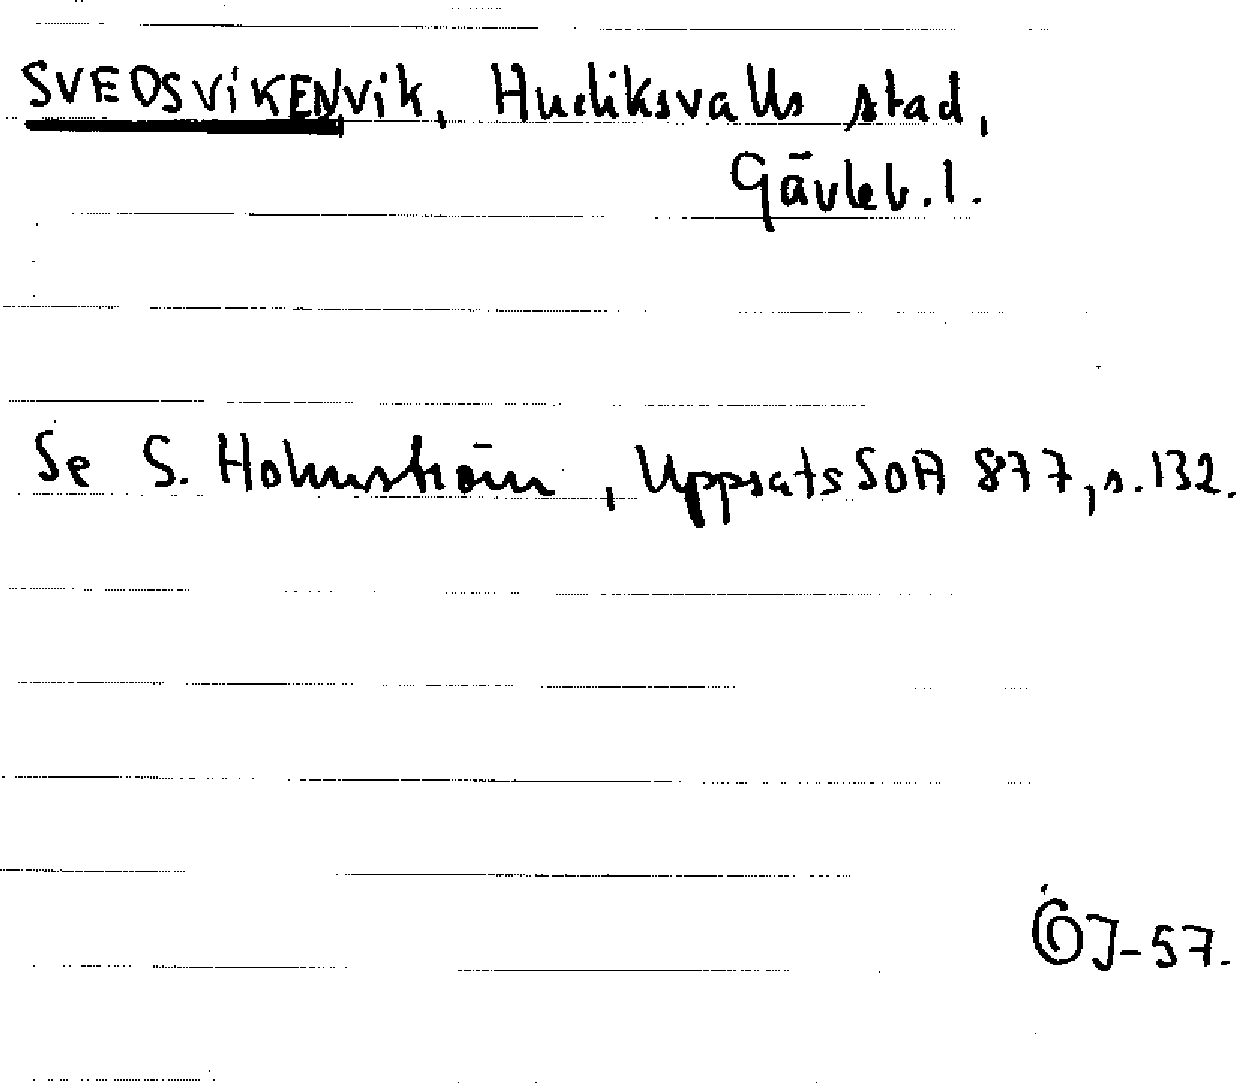 SVEDSVIKEN vik, Hudiksvalls stad,
Gävleb. l.
Se S. Holmström, Uppsats SOA 877, s. 132.
ÖJ-57.